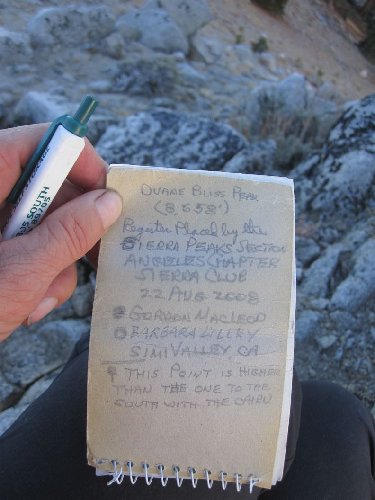 DUANE BLISS PEAK
(8,658')
Register Placed by the
SIERRA PEAKS SECTION
ANGELES CHAPTER
SIERRA CLUB
22 AUG 2008
GORDON MACLEOD
BARBARA LILLEY
SIMI VALLEY, CA
THIS POINT IS HIGHER
THAN THE ONE TO THE
SOUTH WITH THE CAIRN
SOUTH